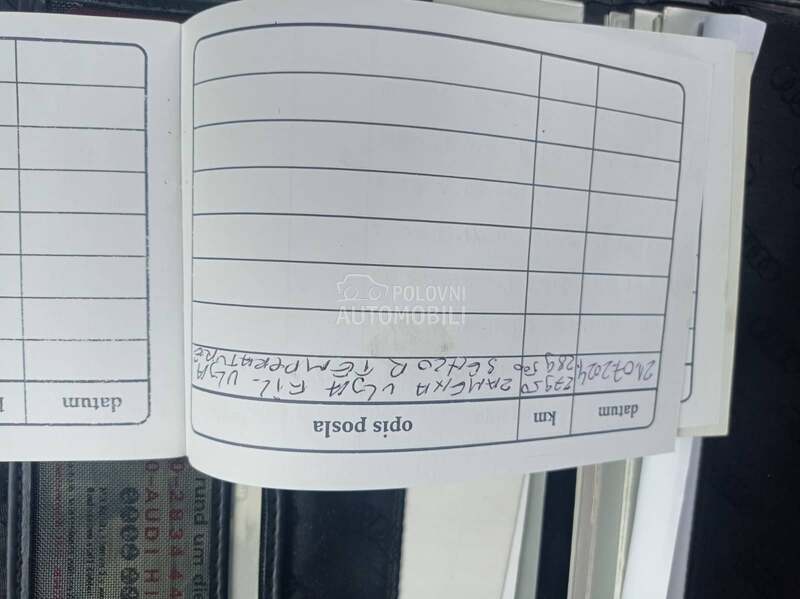 datum km opis posla
21.07.2024 27950 ZAMENA ULJA FIL. ULJA
289500 SENZOR TEMPERATURE
datum
POLOVNI
AUTOMOBILI
rund um die
0-2834 44
0-AUDI HI